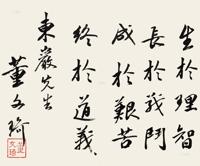 生於理智
長於戰鬥
成於艱苦
終於道義
東嚴先生
董文琦